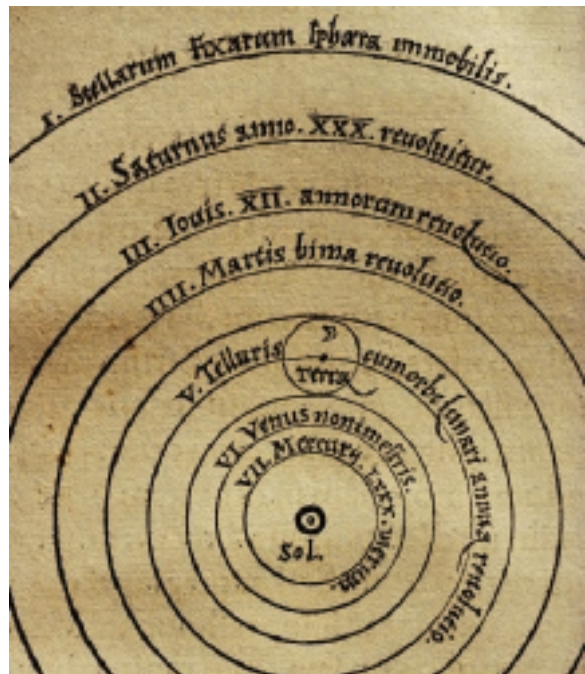 I. Stellarum fixarum sphæra immobilis.
II. Saturnus anno. XXX. revoluitur.
III. Iouis. XII. annorum reuolutio.
IIII. Martis bima reuolutio.
V. Telluris cum orbe lunari annua reuolutio.
Terra
VI. Venus nonimestris.
VII. Mercurij. LXXX. dierum.
Sol.